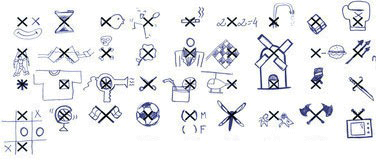 2×2=4
X X
O O
X
(X) M
( ) F